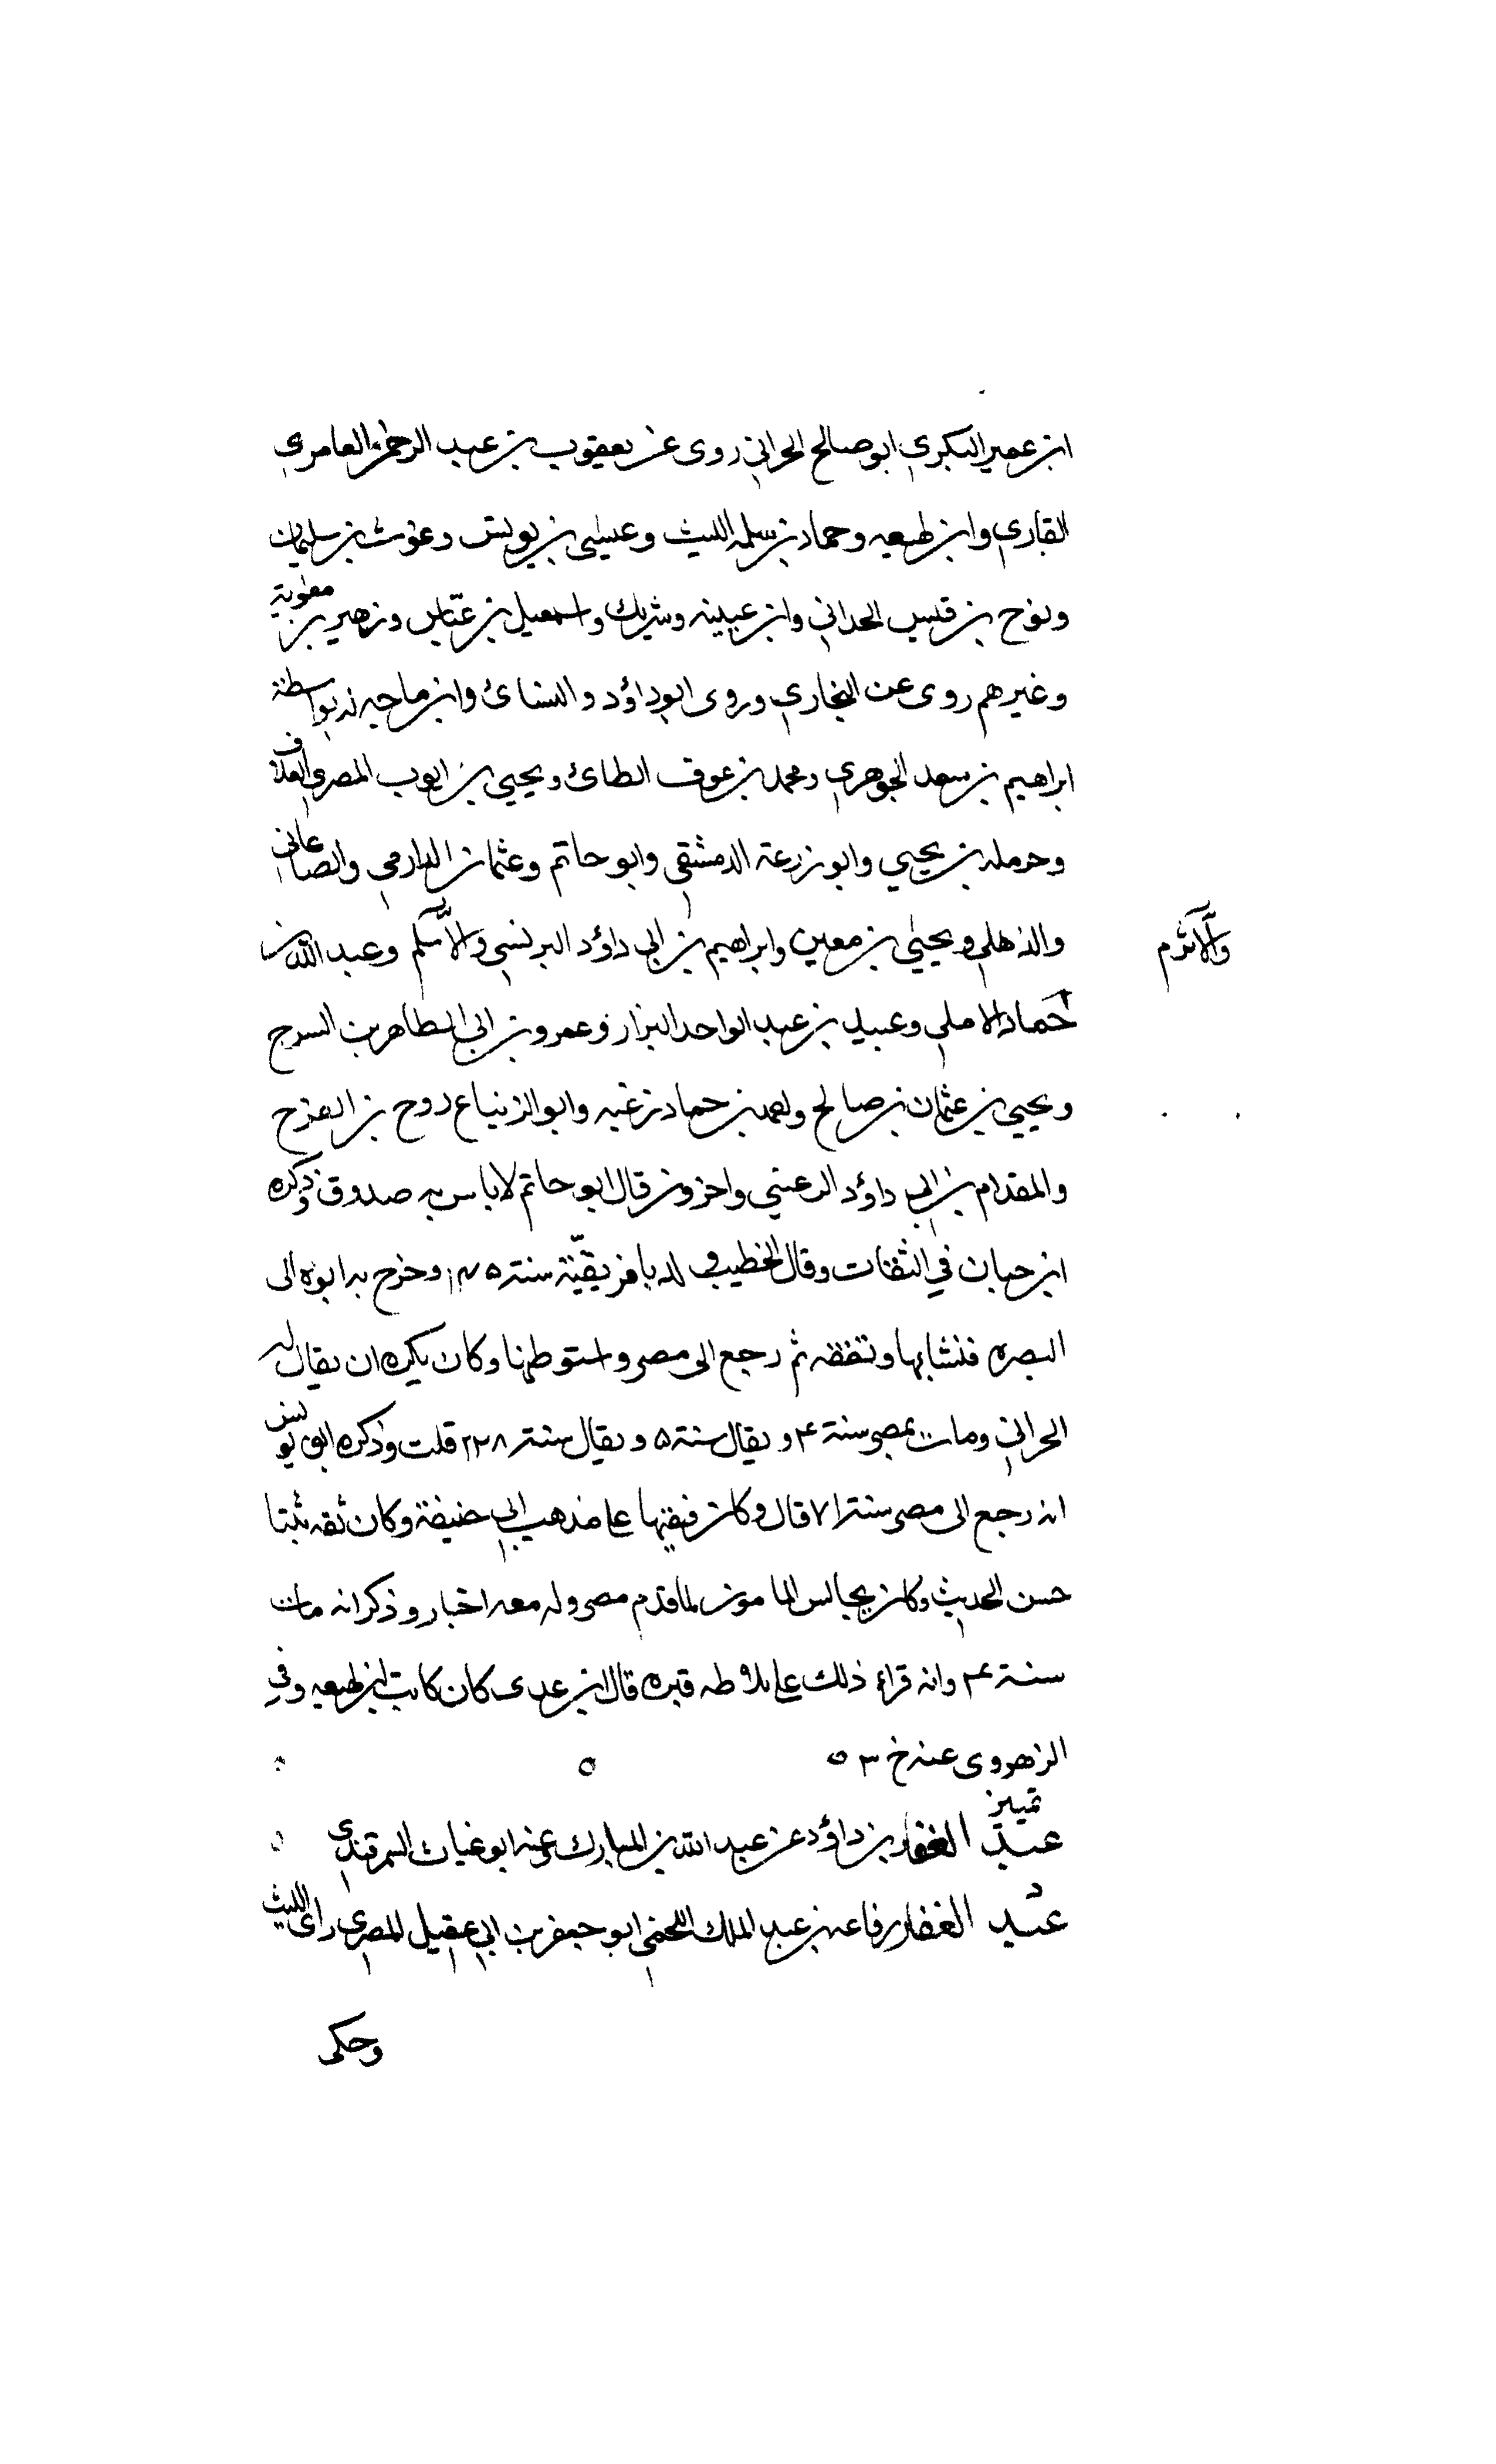 ابن عمير البكري ابو صالح الحراني روى عن يعقوب بن عبد الرحمن العامري
القاري وابن لهيعه وحماد بن سلمه والليث وعيسى بن يونس وغوث بن سليمان
ونوح بن قيس الحداني وابن عيينه وشريك واسمعيل بن عيّاش وزهير بن معوية
وغيرهم روى عنه البخاري وروى ابو داؤد والنسائ وابن ماجه له بواسطة
ابراهيم بن سعد الجوهري ومحمد بن عوف الطائ ويحيي بن ايوب المصري العلاف
وحرمله بن يحيي وابو زرعة الدمشقي وابو حاتم وعثمان الدارمي والصاغاني
والذهلي ويحيٰي بن معين وابراهيم بن ابي داؤد البرلسي وعبد الله بن
والاثرم
حماد الاملي وعبيد بن عبد الواحد البزار وعمرو بن ابي الطاهر بن السرح
ويحيي بن عثمان بن صالح واحمد بن حماد زغبه وابو الزنباع روح بن الفرج
والمقدام بن ابي داؤد الرعيني واخرون قال ابو حاتم لا باس به صدوق وذكره
ابن حبان في الثقات وقال الخطيب ولد بافريقيّة سنة وخرج به ابوه الى
البصره فنشابها وتفقه ثم رجع الى مصر واستوطنها وكان يكره ان يقال له
الحراني ومات بمصر سنة ۴ ويقال سنة ۵ ويقال سنة ۲۲۸ قلت وذكره ابن يونس
انه رجع الى مصر سنة قال وكان فقيها على مذهب ابي حنيفة وكان ثقه ثبتا
حسن الحديث وكان يجالس المامون لما قدم مصر وله معه اخبار وذكر انه مات
سنة ۴ وانه قراء ذلك على بلاطه قبره قال ابن عدى كان كاتب ابن لهيعه وفي
الزهره روى عنه خ ۳
تمييز
عبد الغفار بن داؤد عن عبد الله بن المبارك وعنه ابو غياث السمرقندي
د
عبد الغفار بن رفاعه بن عبد الملك اللخمي ابو جعفر بن ابي عقيل المصري راى الليث
وحكى